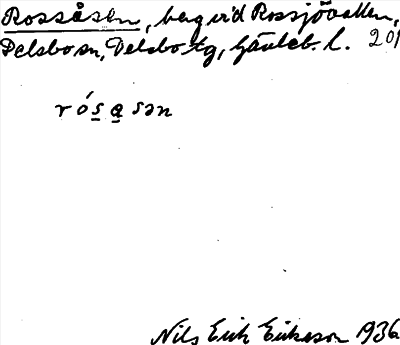 Rossåsen, berg vid Rossjövallen,
Delsbo sn, Delsbo tg, Gävleb. l. 201
rósasən
Nils Erik Eriksson 1936